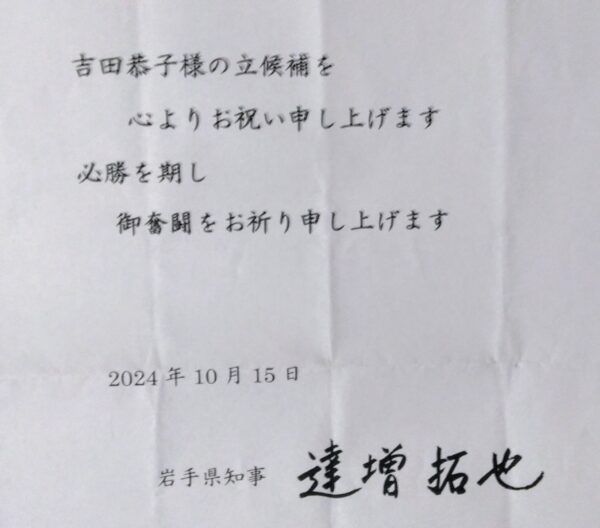 吉田恭子様の立候補を
心よりお祝い申し上げます
必勝を期し
御奮闘をお祈り申し上げます
2024年10月15日
岩手県知事 達増拓也